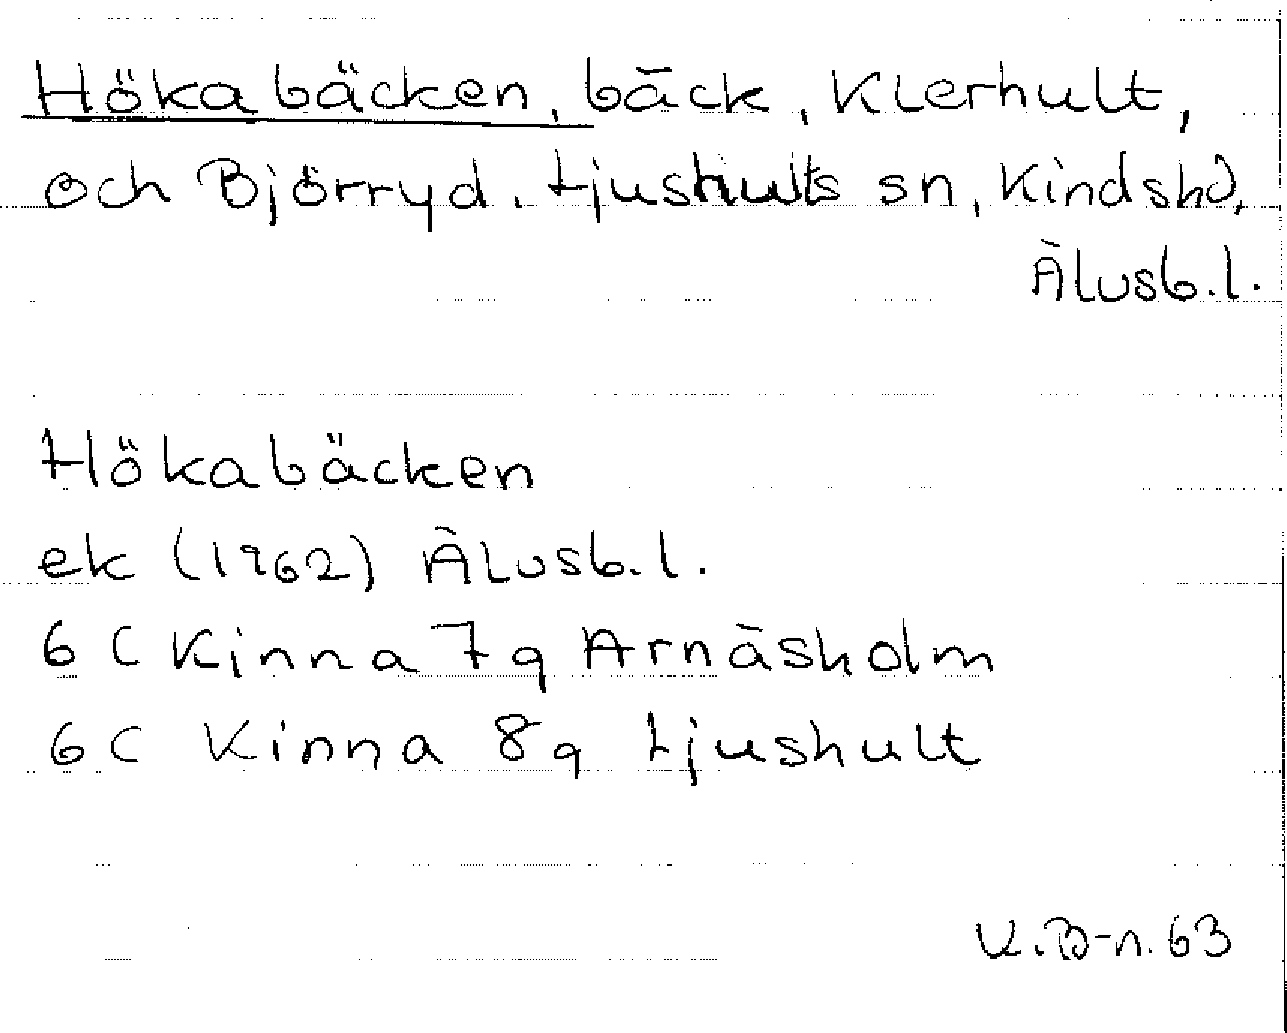 Hökabäcken, bäck, Klerhult,
och Björryd. Ljushults sn, Kinds hd,
Älvsb.l.
Hökabäcken
ek (1962) Älvsb.l.
6 C Kinna 7 g Arnäsholm
6 C Kinna 8 g Ljushult
K.B-n. 63